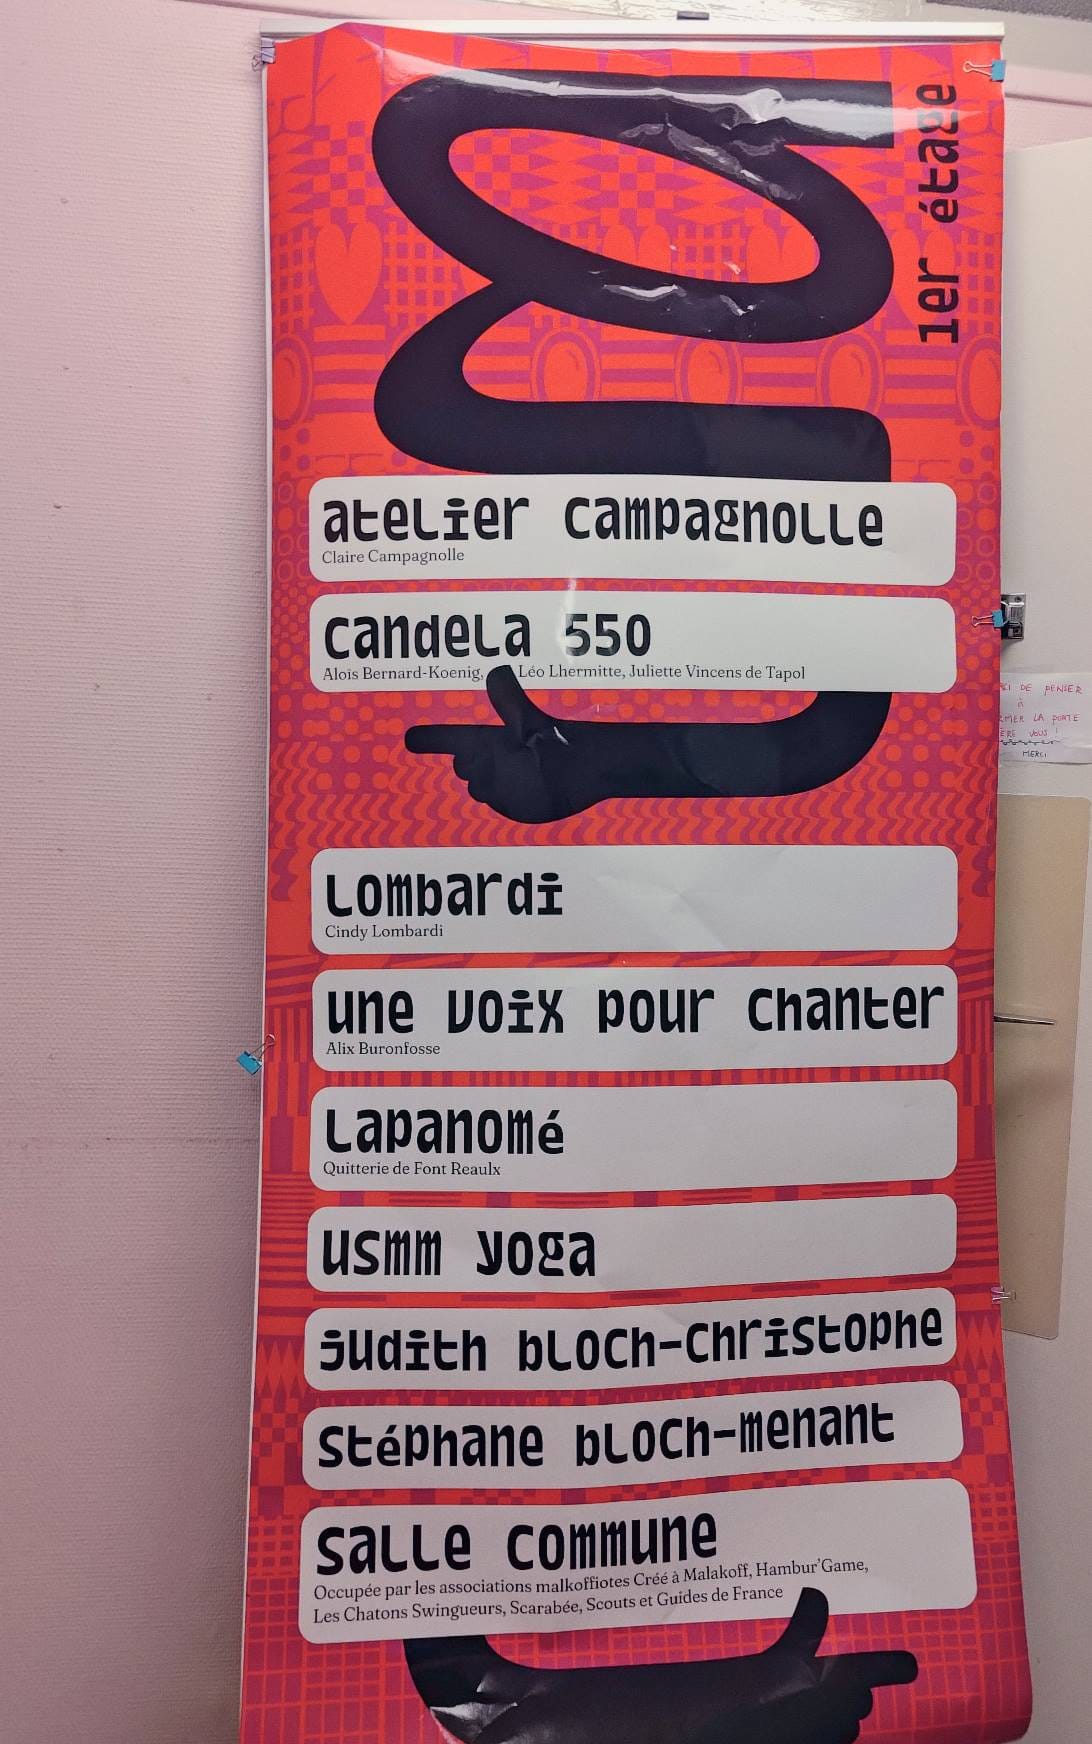 1er étage
atelier campagnolle
Claire Campagnolle
candela 550
Aloïs Bernard-Koenig, Léo Lhermitte, Juliette Vincens de Tapol
Lombardi
Cindy Lombardi
une voix pour chanter
Alix Buronfosse
Lapanomé
Quitterie de Font Reaulx
usmm yoga
judith bloch-christophe
stéphane bloch-menant
salle commune
Occupée par les associations malkoffiotes Créé à Malakoff, Hambur'Game,
Les Chatons Swingueurs, Scarabée, Scouts et Guides de France
DE PENSER
à
LA PORTE
VOUS !
MERCI